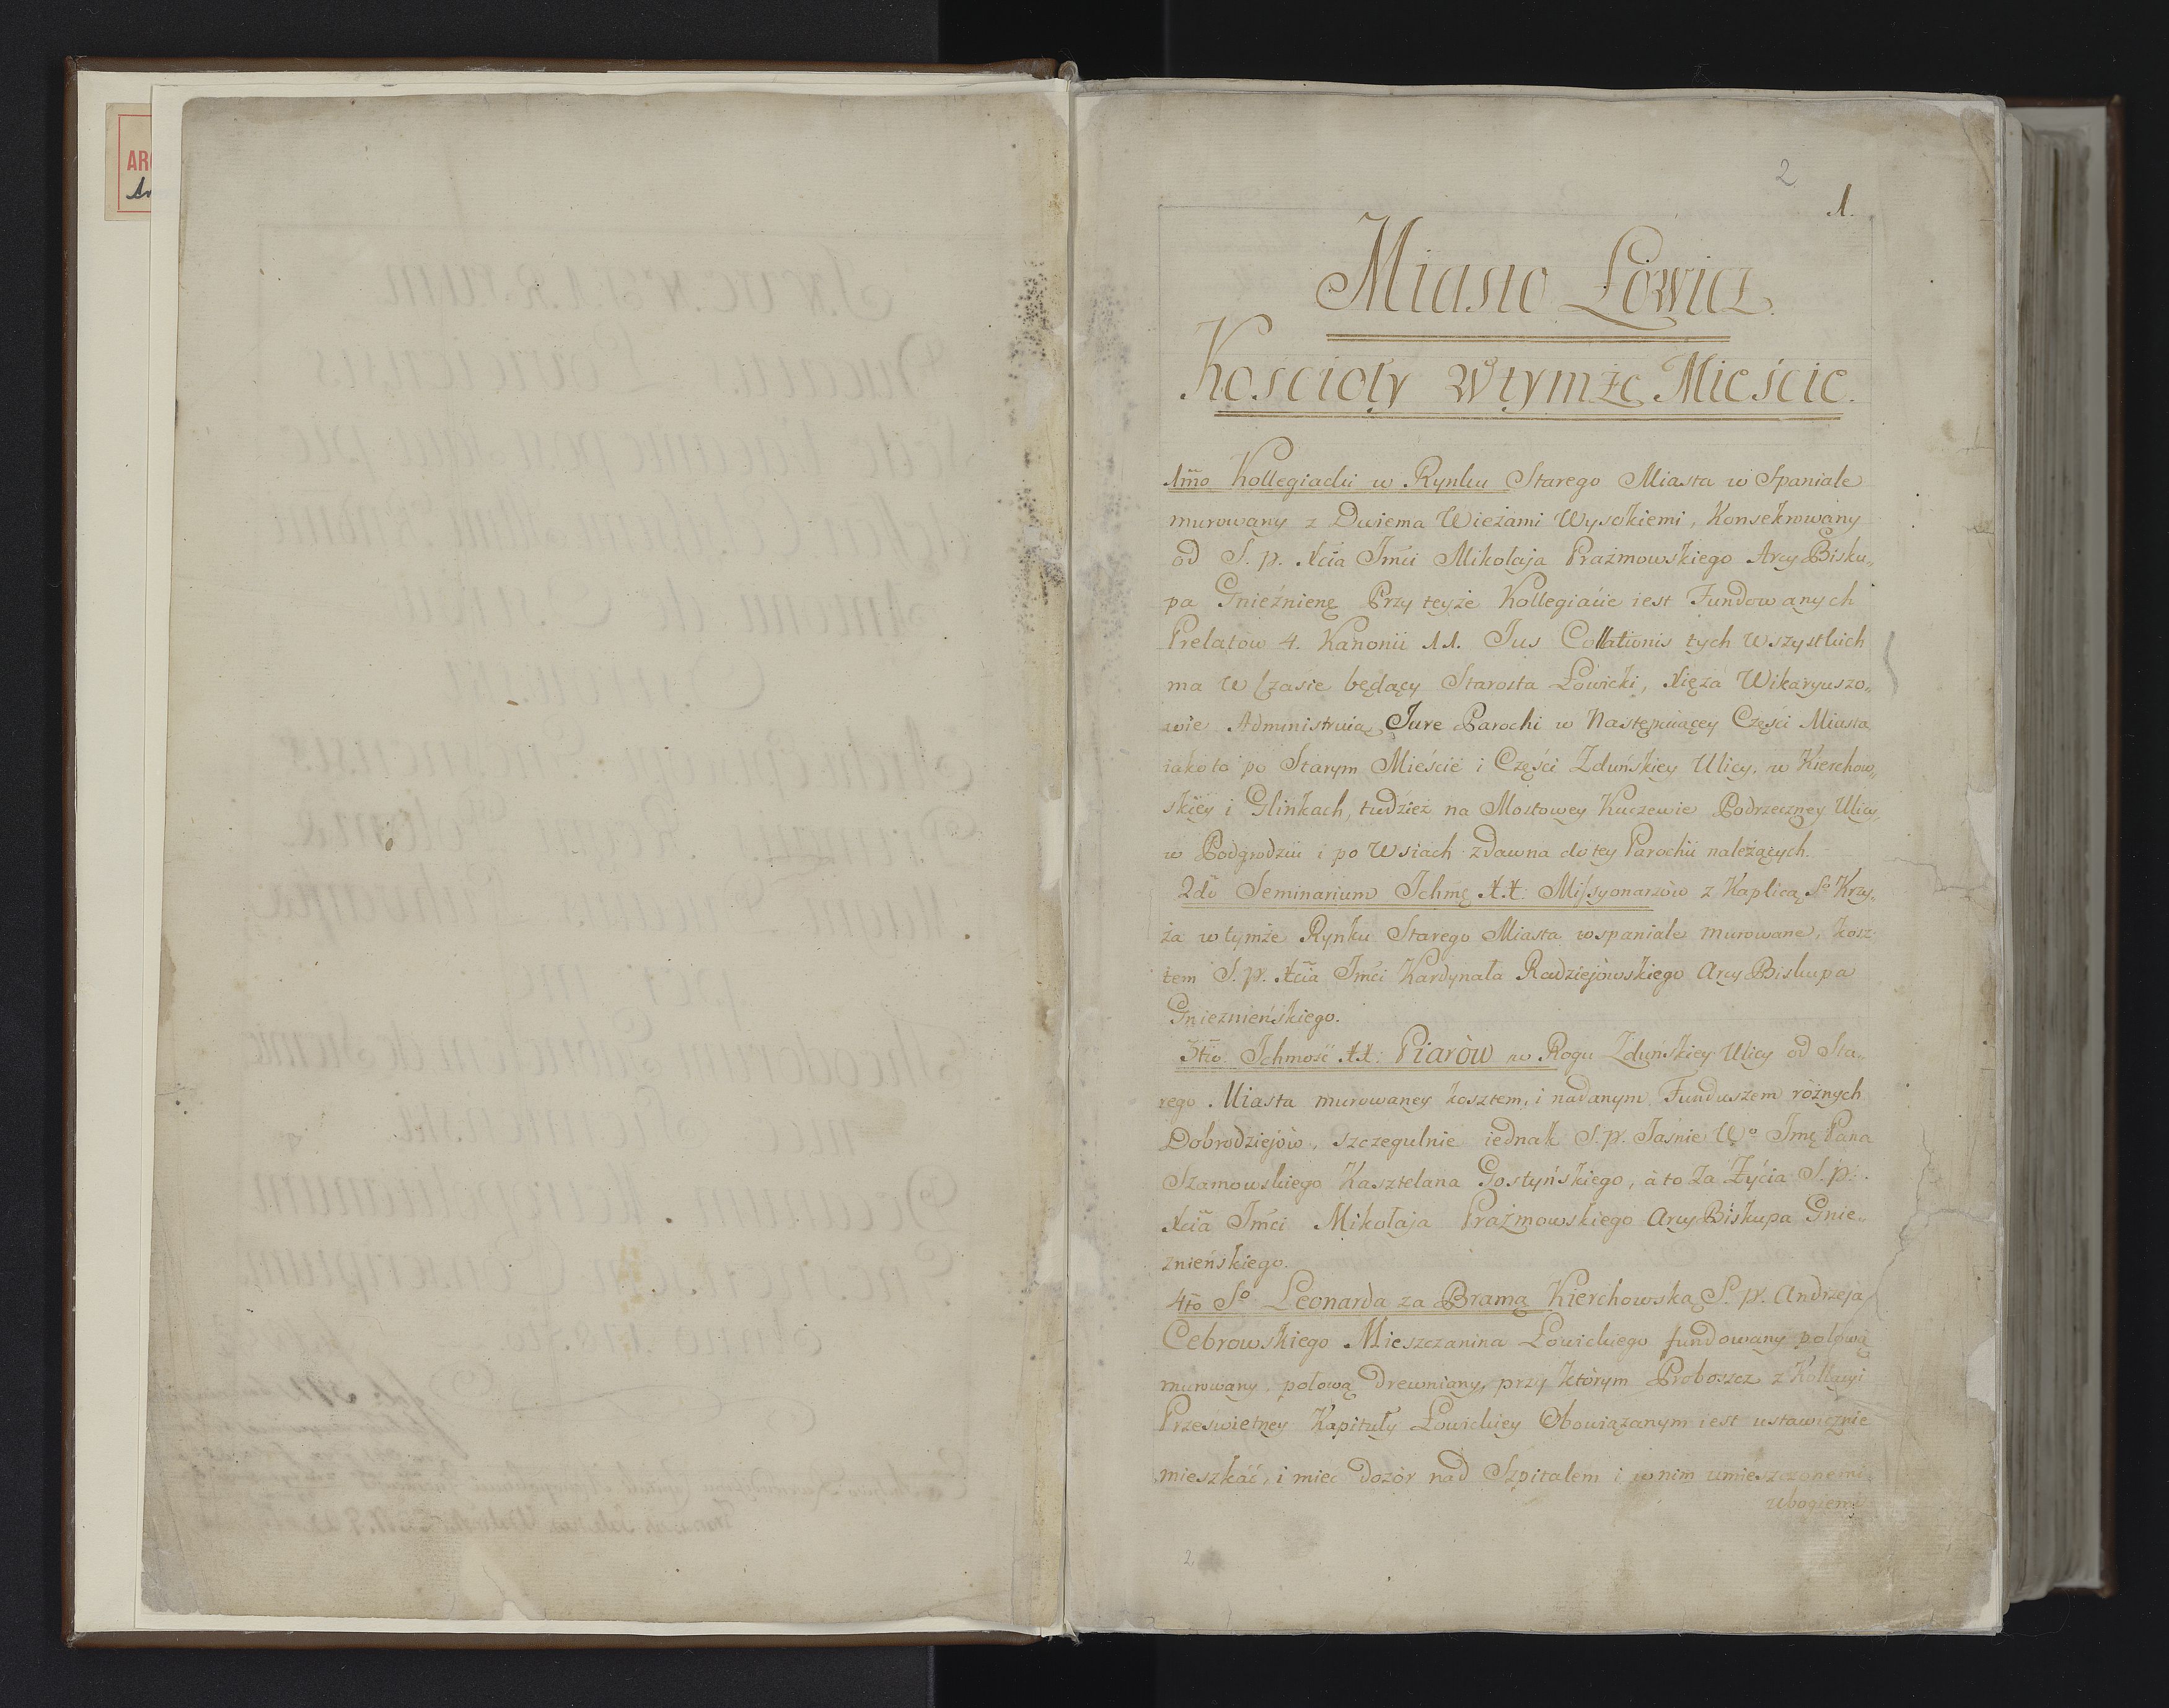 AR
2
1.
Miasto Łowicz.
Kościoły w tymże Mieście.
1mo Kollegiacki w Rynku Starego Miasta w Spaniale
murowany z Dwiema Wieżami Wysokiemi, Konsekrowany
od S. p. Xcia Jmći Mikołaja Prażmowskiego Arcy Bisku„
pa Gnieźnieng Przy teyże Kollegiacie iest Fundowanych
Prelatow 4. Kanonii 11. Jus Collationis tych wszystkich
ma w Czasie będący Starosta Łowicki, Xięża Wikaryuszo„
wie Administruią Jure Parochi w Następuiącey Części Miasta
iako to po Starym Mieście i Części Zduńskiey Ulicy, w Kierchow„
skiey i Glinkach, tudzież na Mostowey Kuczewie Podrzeczney Ulicy,
w Podgrodziu i po Wsiach zdawna do tey Parochii należących.
2do Seminarium Ichmę XX. Missyonarzow z Kaplicą So Krzy„
ża w tymże Rynku Starego Miasta wspaniale murowane, kosz
tem S. p. Xcia Jmći Kardynała Radziejowskiego Arcy Biskupa
Gnieznieńskiego.
3tio. Ichmość XX: Piaròw w Rogu Zduńskiey Ulicy od Sta„
rego Miasta murowaney kosztem, i nadanym Funduszem różnych
Dobrodziejòw, szczegulnie iednak S. p. Jaśnie Wo Jmę Pana
Szamowskiego Kasztelana Gostyńskiego, à to za Życia S. p.
Xcia Jmći Mikołaja Prażmowskiego Arcy Biskupa Gnie„
znieńskiego.
4to So Leonarda za Bramą Kierchowską S. p. Andrzeja
Cebrowskiego Mieszczanina Łowickiego fundowany połową
murowany, połową drewniany, przy ktòrym Proboszcz z Kollacyi
Prześwietney Kapituły Łowickiey Obowiązanym iest ustawicznie
mieszkać, i mieć dozòr nad Szpitalem i w nim umieszczonemi
ubogiemi
2